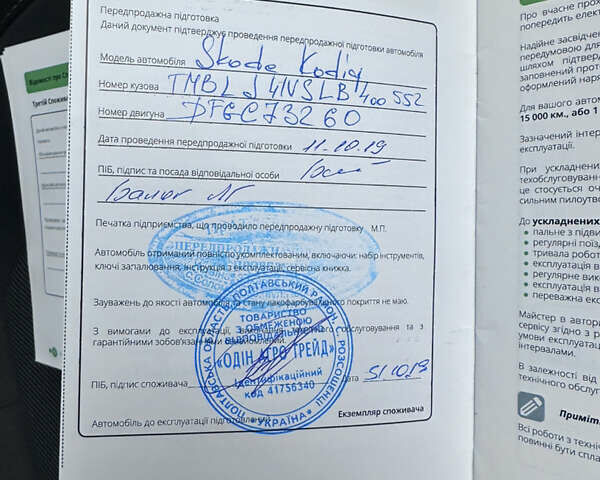 Передпродажна підготовка
Даний документ підтверджує проведення передпродажної підготовки автомобіля
Модель автомобіля Skoda Kodiq
Номер кузова TMBLJ4NS1LB400552
Номер двигуна DFGC73260
Дата проведення передпродажної підготовки 11.10.19
ПІБ, підпис та посада відповідальної особи
Печатка підприємства, що проводило передпродажну підготовку М.П.
Автомобіль отриманий повністю укомплектованим, включаючи: набір інструментів,
ключі запалювання, інструкція з експлуатації, сервісна книжка.
Зауважень до якості автомобіля та стану лакофарбувального покриття не маю.
З вимогами до експлуатації,
обслуговування та з
гарантійними зобов'язаннями
ПІБ, підпис споживача
Дата 31.10.19
Автомобіль до експлуатації підготовлений
Екземпляр споживача
ПОЛТАВСЬКА ОБЛАСТЬ, ПОЛТАВСЬКИЙ РАЙОН
ТОВАРИСТВО
З ОБМЕЖЕНОЮ
ВІДПОВІДАЛЬНІСТЮ
«ОДІН АГРО ТРЕЙД»
Ідентифікаційний
код 41756340
* УКРАЇНА *
Третій Спожив
Відомості про Сп
Про вчасне прох
попередить елект
Надійне засвідчен
передумовою для
шляхом підтверд
заповнений прот
оформлений наря
Для вашого автомо
15 000 км., або 1
Зазначений інтер
експлуатації.
При ускладнени
техобслуговуванн
це стосується оч
сильним пилоутво
До ускладнених
• пальне з підви
• регулярні поїзд
• тривала робот
• експлуатація в
• регулярне вик
• експлуатація в
• переважна екс
Майстер в автори
сервісу згідно з р
умови експлуатац
інтервалами.
В залежності від
технічного обслуг
Приміт
Всі роботи з техніч
повинні бути спла